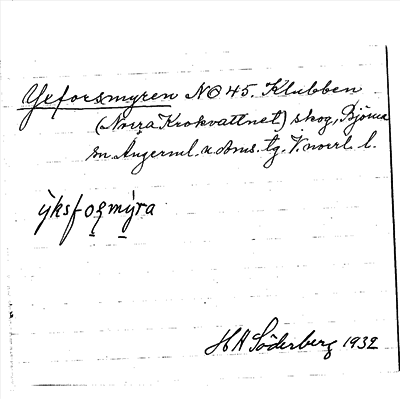 Yxeforsmyren NO 45. Klubben
(Norra Krokvattnet) skog, Björna
sn Ångerml. n. doms. tg. V. norrl. l.
ỳksfo̱r̥mỳ̱ra
H A Söderberg 1932